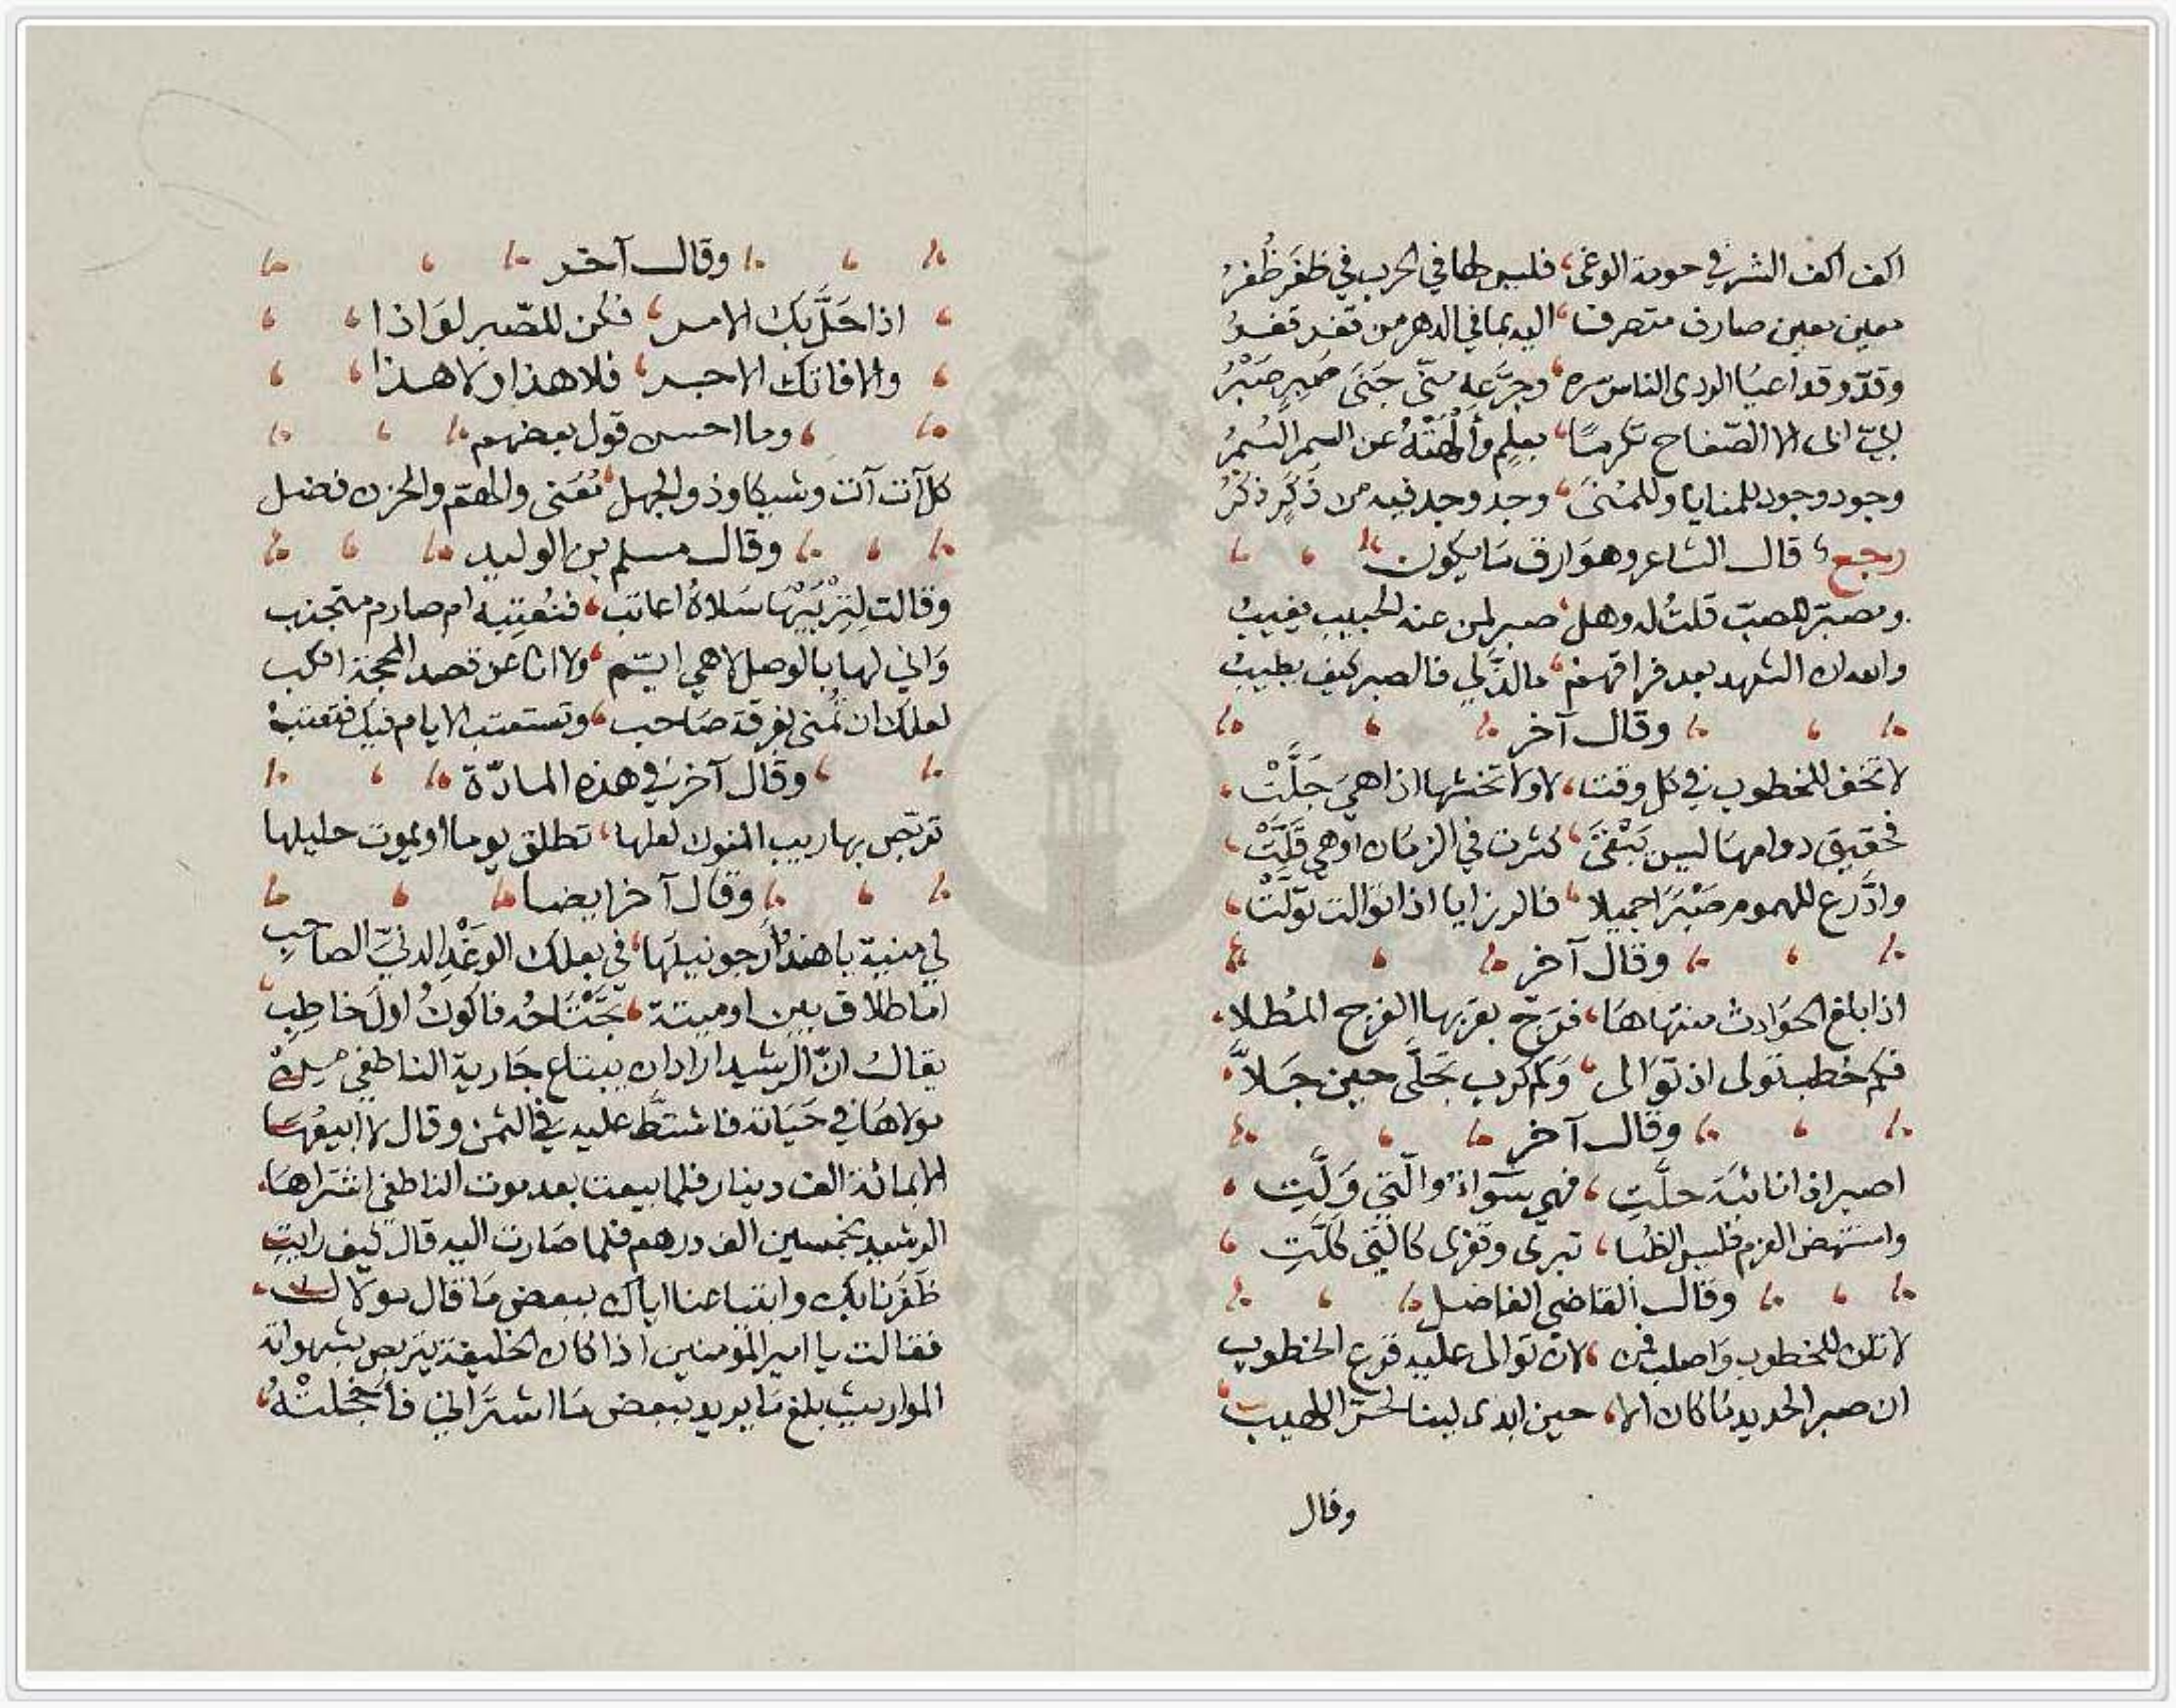 اكف اكف الشر في حومة الوغى، فليس لها في الحرب في ظَفَر ظُفرُ
معين معين صارف متصرف، اليه بما في الدهر من
وقد اعيا الورى الناس سره، وجرَّعه متى جَنَى صَبِرٍ صَبْرُ
الا الصّفاح تكرمًا، بعلم وأَلْهَتْهُ عن السمر السُمرُ
وجود وجود للمنايا وللمُنَى، وجد وجد فيه من ذَكَرٍ ذكرُ
رجع، قال الشاعر وهو ارق ما يكون
ومصبّر للصبّ قلتُ له وهل، صبر لمن عنه الحبيب يغيبُ
والله ان الشهد بعد فراقهم، ما لذَّ لي فالصبر كيف يطيبُ
وقال آخر
لا تخف للخطوب في كل وقت، لا ولا تخشها اذا هيَ جَلَّتْ
فحقيق دوامها ليس يَبْقَى، كثرت في الزمان او هي قَلَّتْ
وادَّرع للهموم صَبْرًا جميلا، فالرزايا اذا توالت تولّتْ
وقال آخر
اذا بلغ الحوادث منتهاها، فرجّ بقربها الفرج المُطلا
فكم خطب تولى اذ توالى، وكم كرب تجلَّى حين جَلاَّ
وقال آخر
اصبر اذا نائبة حلَّتِ، فهي سواء والّتي وَلَّيت
واستنهض العزم فليس الظبا، تبرى وتفرى كالتي كَلَّتِ
وقال القاضي الفاضل
لا تلن للخطوب واصلب فمن، لان توالى عليه قرع الخطوب
ان صبر الحديد ما كان الا، حين ابدى لينا لحرّ اللهيب
وقال
وقال آخر
اذا حَلَّ بَكَ الامر، فكن للصّبر لوَاذا
والا فاتك الاجر، فلا هذا ولا هذا
وما احسن قول بعضهم
كل آت آت وشيكا وذو الجهل، مُعَنى والهمّ والحزن فضل
وقال مسلم بن الوليد
وقالت لِتِرْبَيْهَا سَلاهُ اعاتب، فنُعتِبه ام صارم متجنب
وَاني لها بالوصل لا هي ايتّم، ولا انا عن قصد المحجة انكب
لعلك ان تُمنى بفرقة صَاحب، وتستعتب الايام فيك فتعتبُ
وقال آخر في هذه المادّة
تربّص بها ريب المنون لعلها، تطلق يوما او يموت حليلها
وقال آخر ايضا
لي منية يا هندُ أرجو نيلَها، في بعلك الوَغْدِ الدنيّ الصاحب
اما طلاق بين او ميتة، تجْتَاحُه فاكونُ اولَ خاطِبِ
يقال انّ الرشيد اراد ان يبتاع جَارية الناطفي من
مولاهَا في حَيَاته فاشتطَّ عليه في الثمن وقال لا ابيعُها
الا بمائة الف دينار فلما بيعت بعد موت الناطفي اشتراها
الرشيد بخمسين الف درهم فلما صَارت اليه قال كيف رايتِ
ظَفَرَنا بك وابتياعنا اياك ببعض مَا قال مولاك
فقالت يا امير المؤمنين اذا كان الخليفة يتربص بشهواته
المواريث بلغ مَا يريد ببعض مَا اشترَاني فأخجلتْهُ